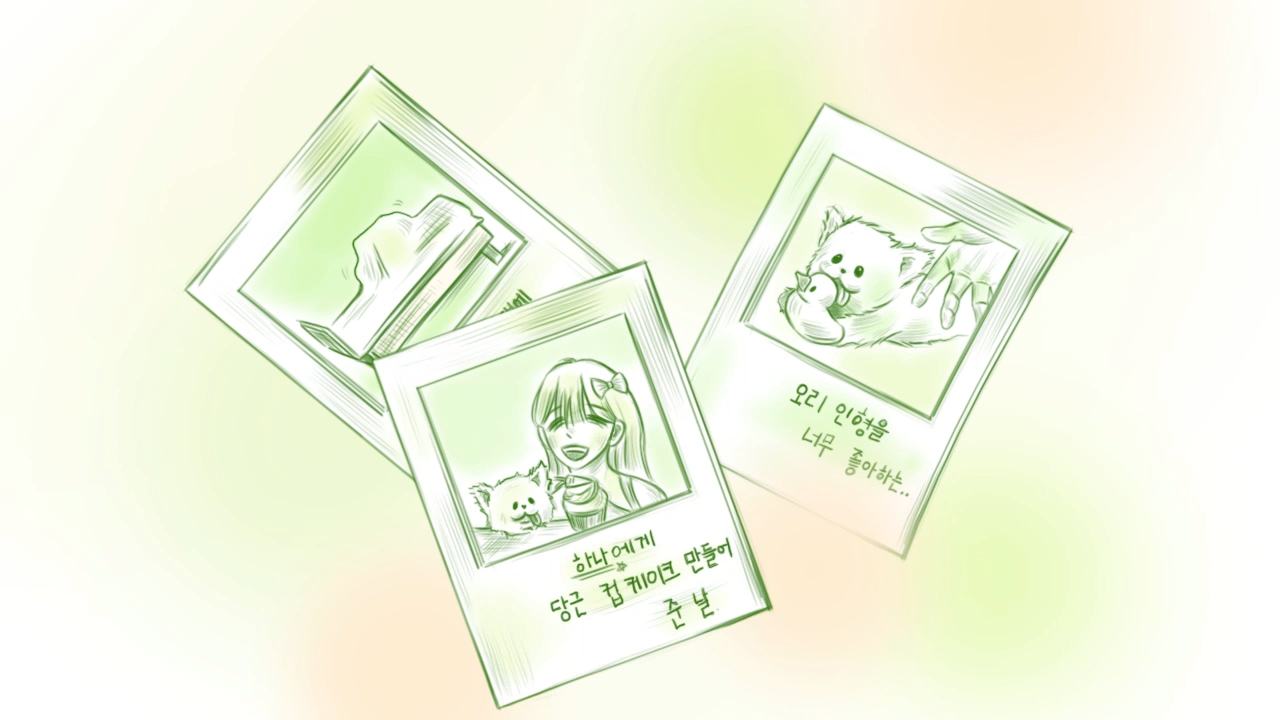 하나에게
당근 컵케이크 만들어
준 날
오리 인형을
너무 좋아하는..